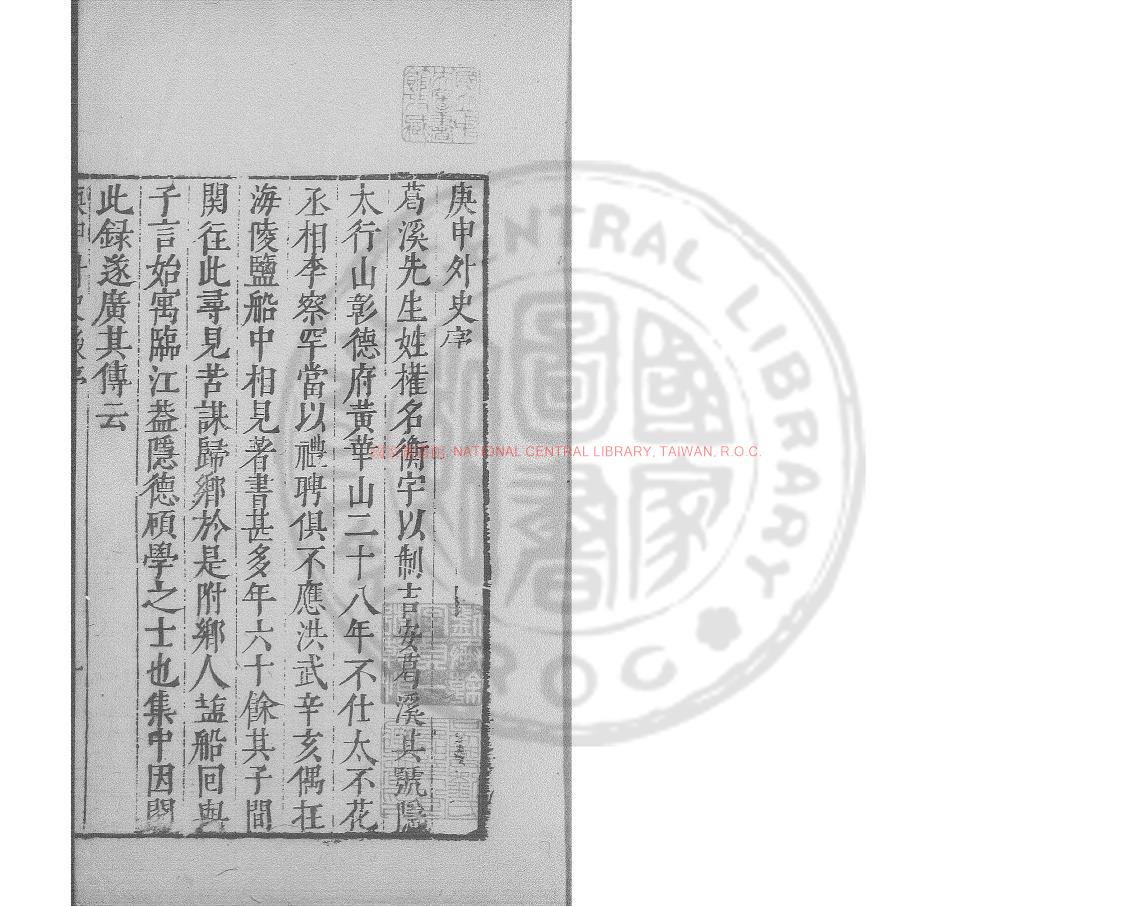 庚申外史序
葛溪先生姓權名衡字以制吉安葛溪其號隱
太行山彰德府黃華山二十八年不仕太不花
丞相李察罕當以禮聘俱不應洪武辛亥偶在
海陵鹽船中相見著書甚多年六十餘其子間
関徃此尋見苦謀歸鄉於是附鄉人塩船囘與
子言始寓臨江葢隱德碩學之士也集中因閱
此録遂廣其傳云
NATIONAL CENTRAL LIBRARY, TAIWAN, R.O.C.
CENTRAL LIBRARY
ROC
國家圖